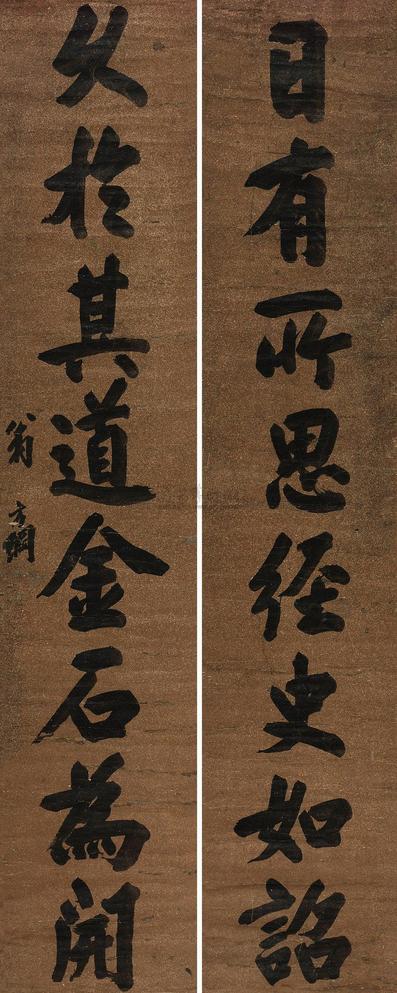 日有所思經史如詔
久於其道金石為開
翁方綱